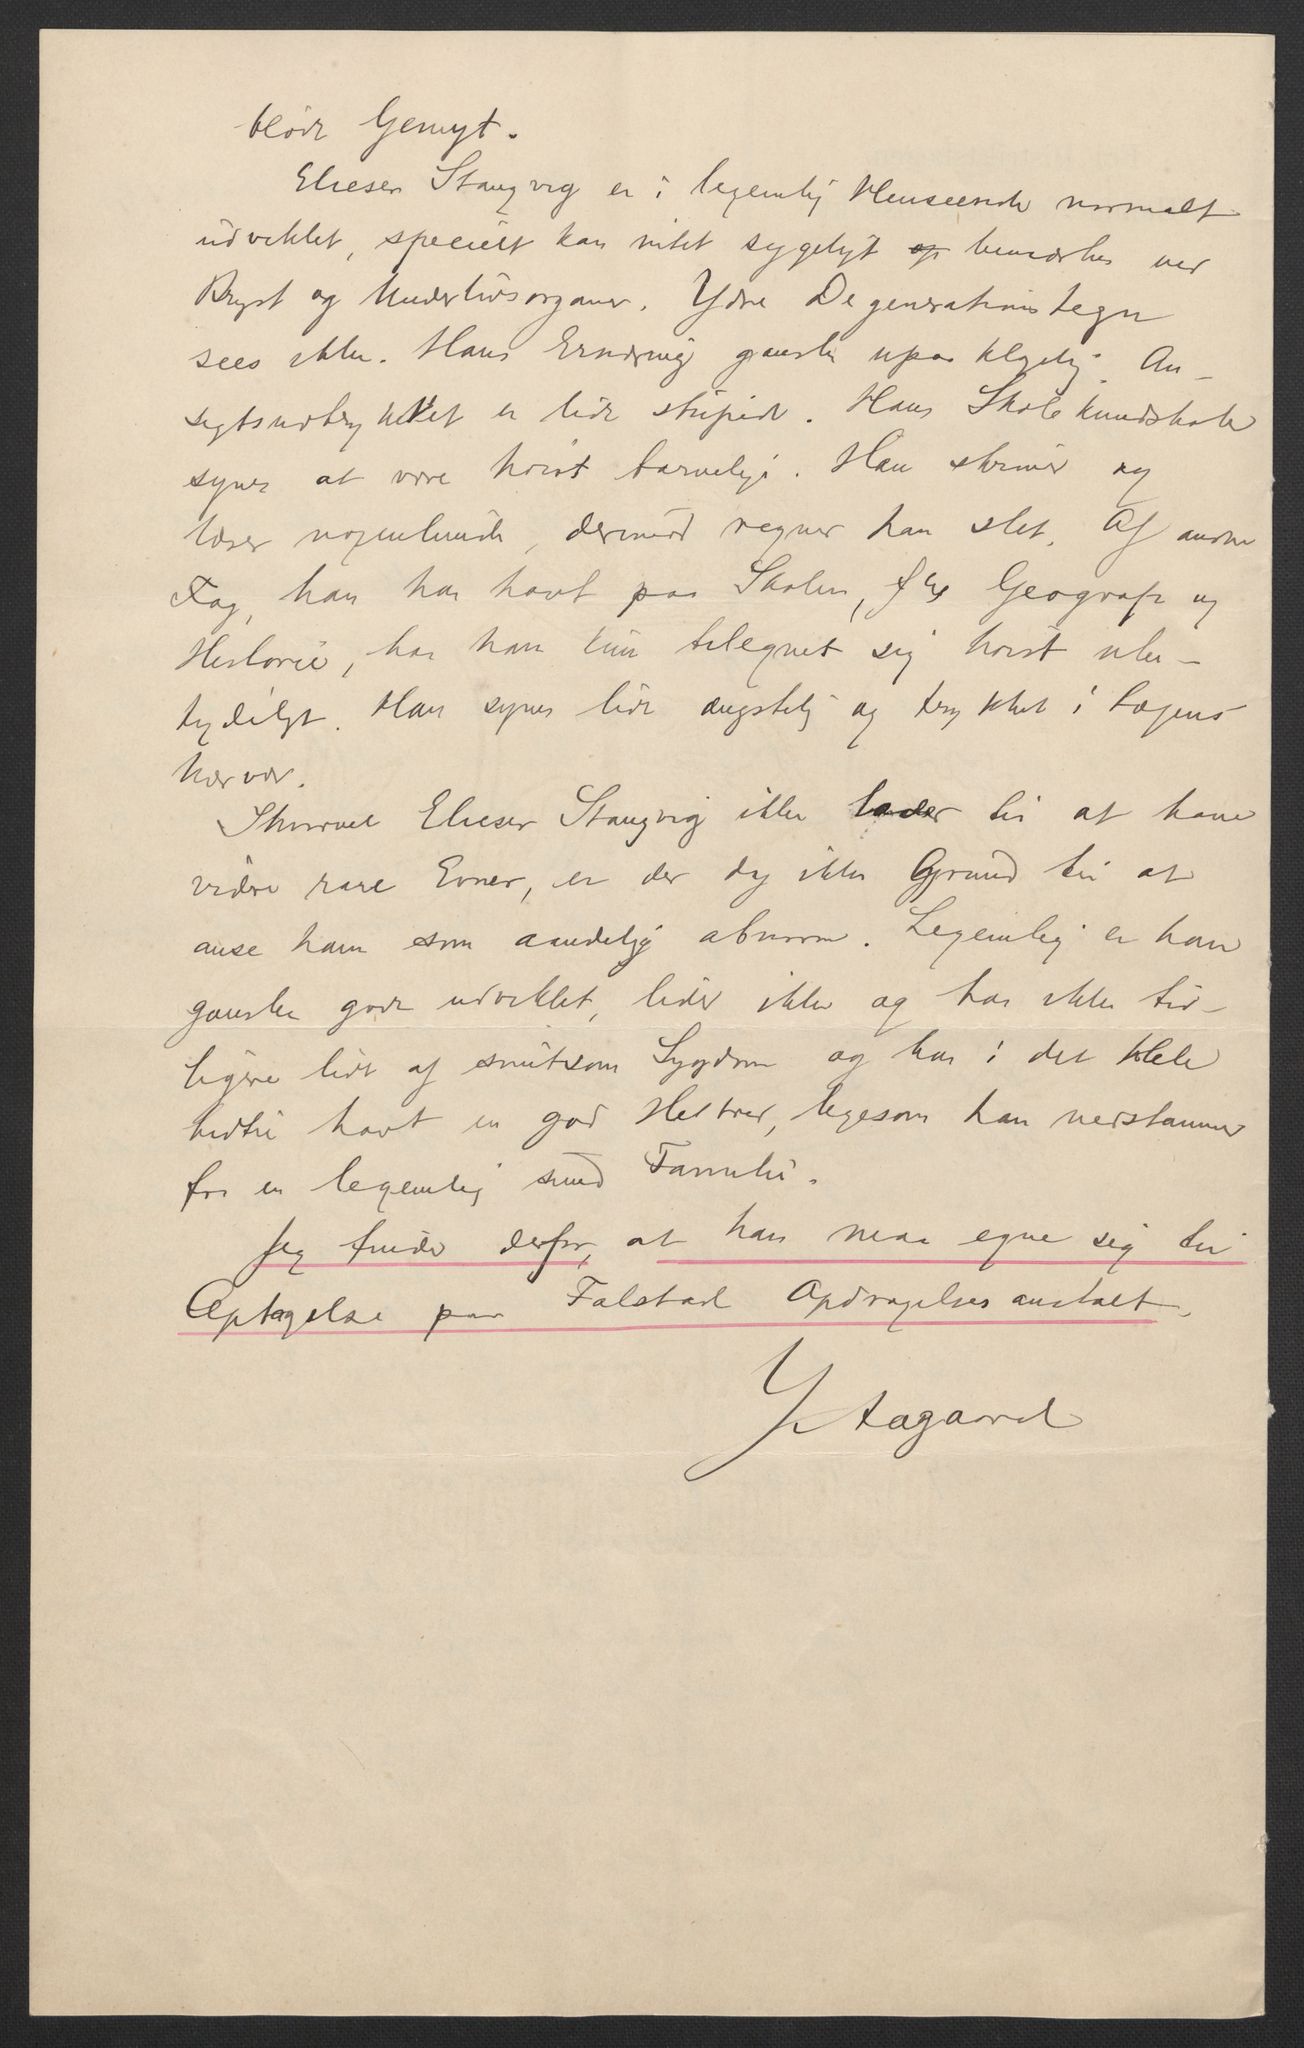 blødt Gemyt.
Elieser Stangvig er i legemlig Henseende normalt
udviklet, specielt kan intet sygeligt bemærkes ved
Bryst og Underlivsorganer. Ydre Degenerationstegn
sees ikke. Hans Ernæring ganske upaaklagelig. An-
sigtsudtrykket er lidt stupidt. Hans Skolekundskaber
synes at være høist tarvelige. Han skriver og
læser nogenlunde, derimod regner han slet. Af andre
Fag, han har havt paa Skolen, f Ex Geografi og
Historie, har han kun tilegnet sig høist ube-
tydeligt. Han synes lidt ængstelig og trykket i Lægens
nærvær.
Skjønt Elieser Stangvig ikke lader til at have
videre rare Evner, er der dog ikke Grund til at
anse ham som aandelig abnorm. Legemlig er han
ganske godt udviklet, lider ikke og har ikke tid-
ligere lidt af smitsom Sygdom og har i det Hele
hidtil havt en god Helbred, ligesom han nedstammer
fra en legemlig sund Familie.
Jeg finder derfor, at han maa egne sig til
Optagelse paa Falstad Opdragelsesanstalt.
Aagaard